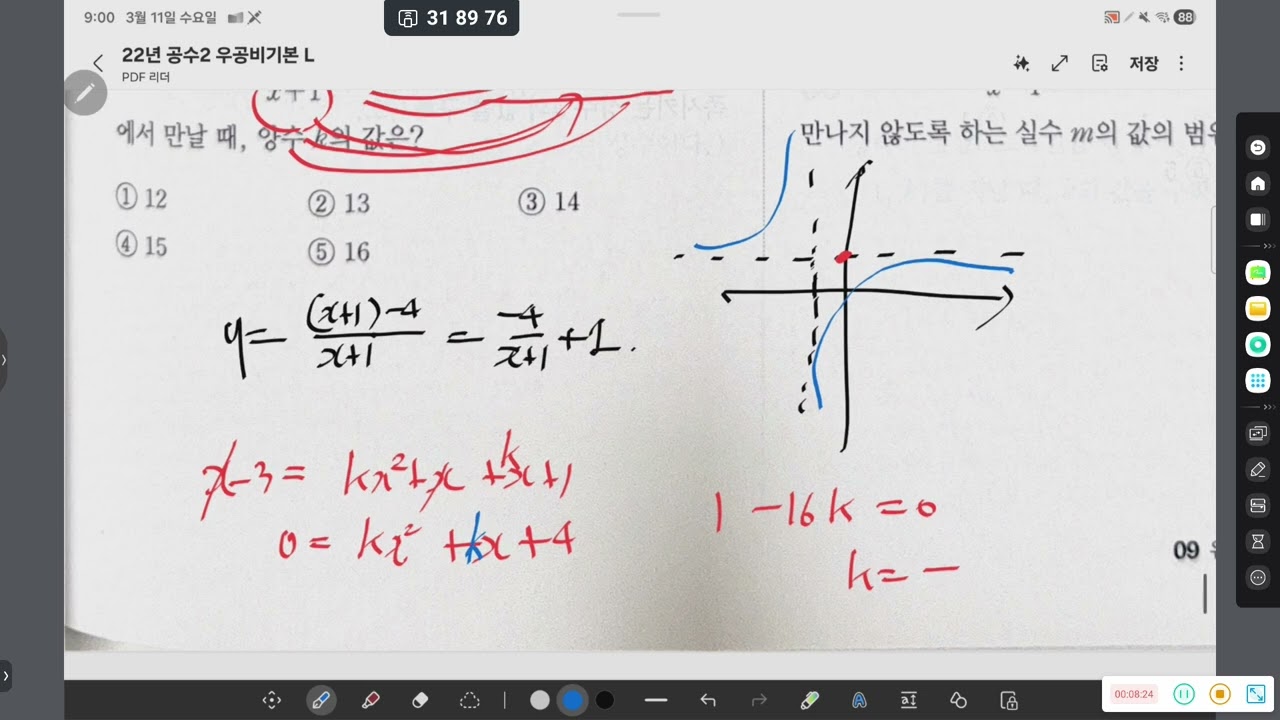 9:00 3월 11일 수요일
31 89 76
88
22년 공수2 우공비기본 L
PDF 리더
저장
x+1
에서 만날 때, 양수 k의 값은?
① 12 ② 13 ③ 14
④ 15 ⑤ 16
만나지 않도록 하는 실수 m의 값의 범
y = (x+1)-4 / x+1 = -4 / x+1 + 1.
x-3 = kx²+x+kx+1
0 = kx²+kx+4
1 -16k = 0
k = -
09
00:08:24